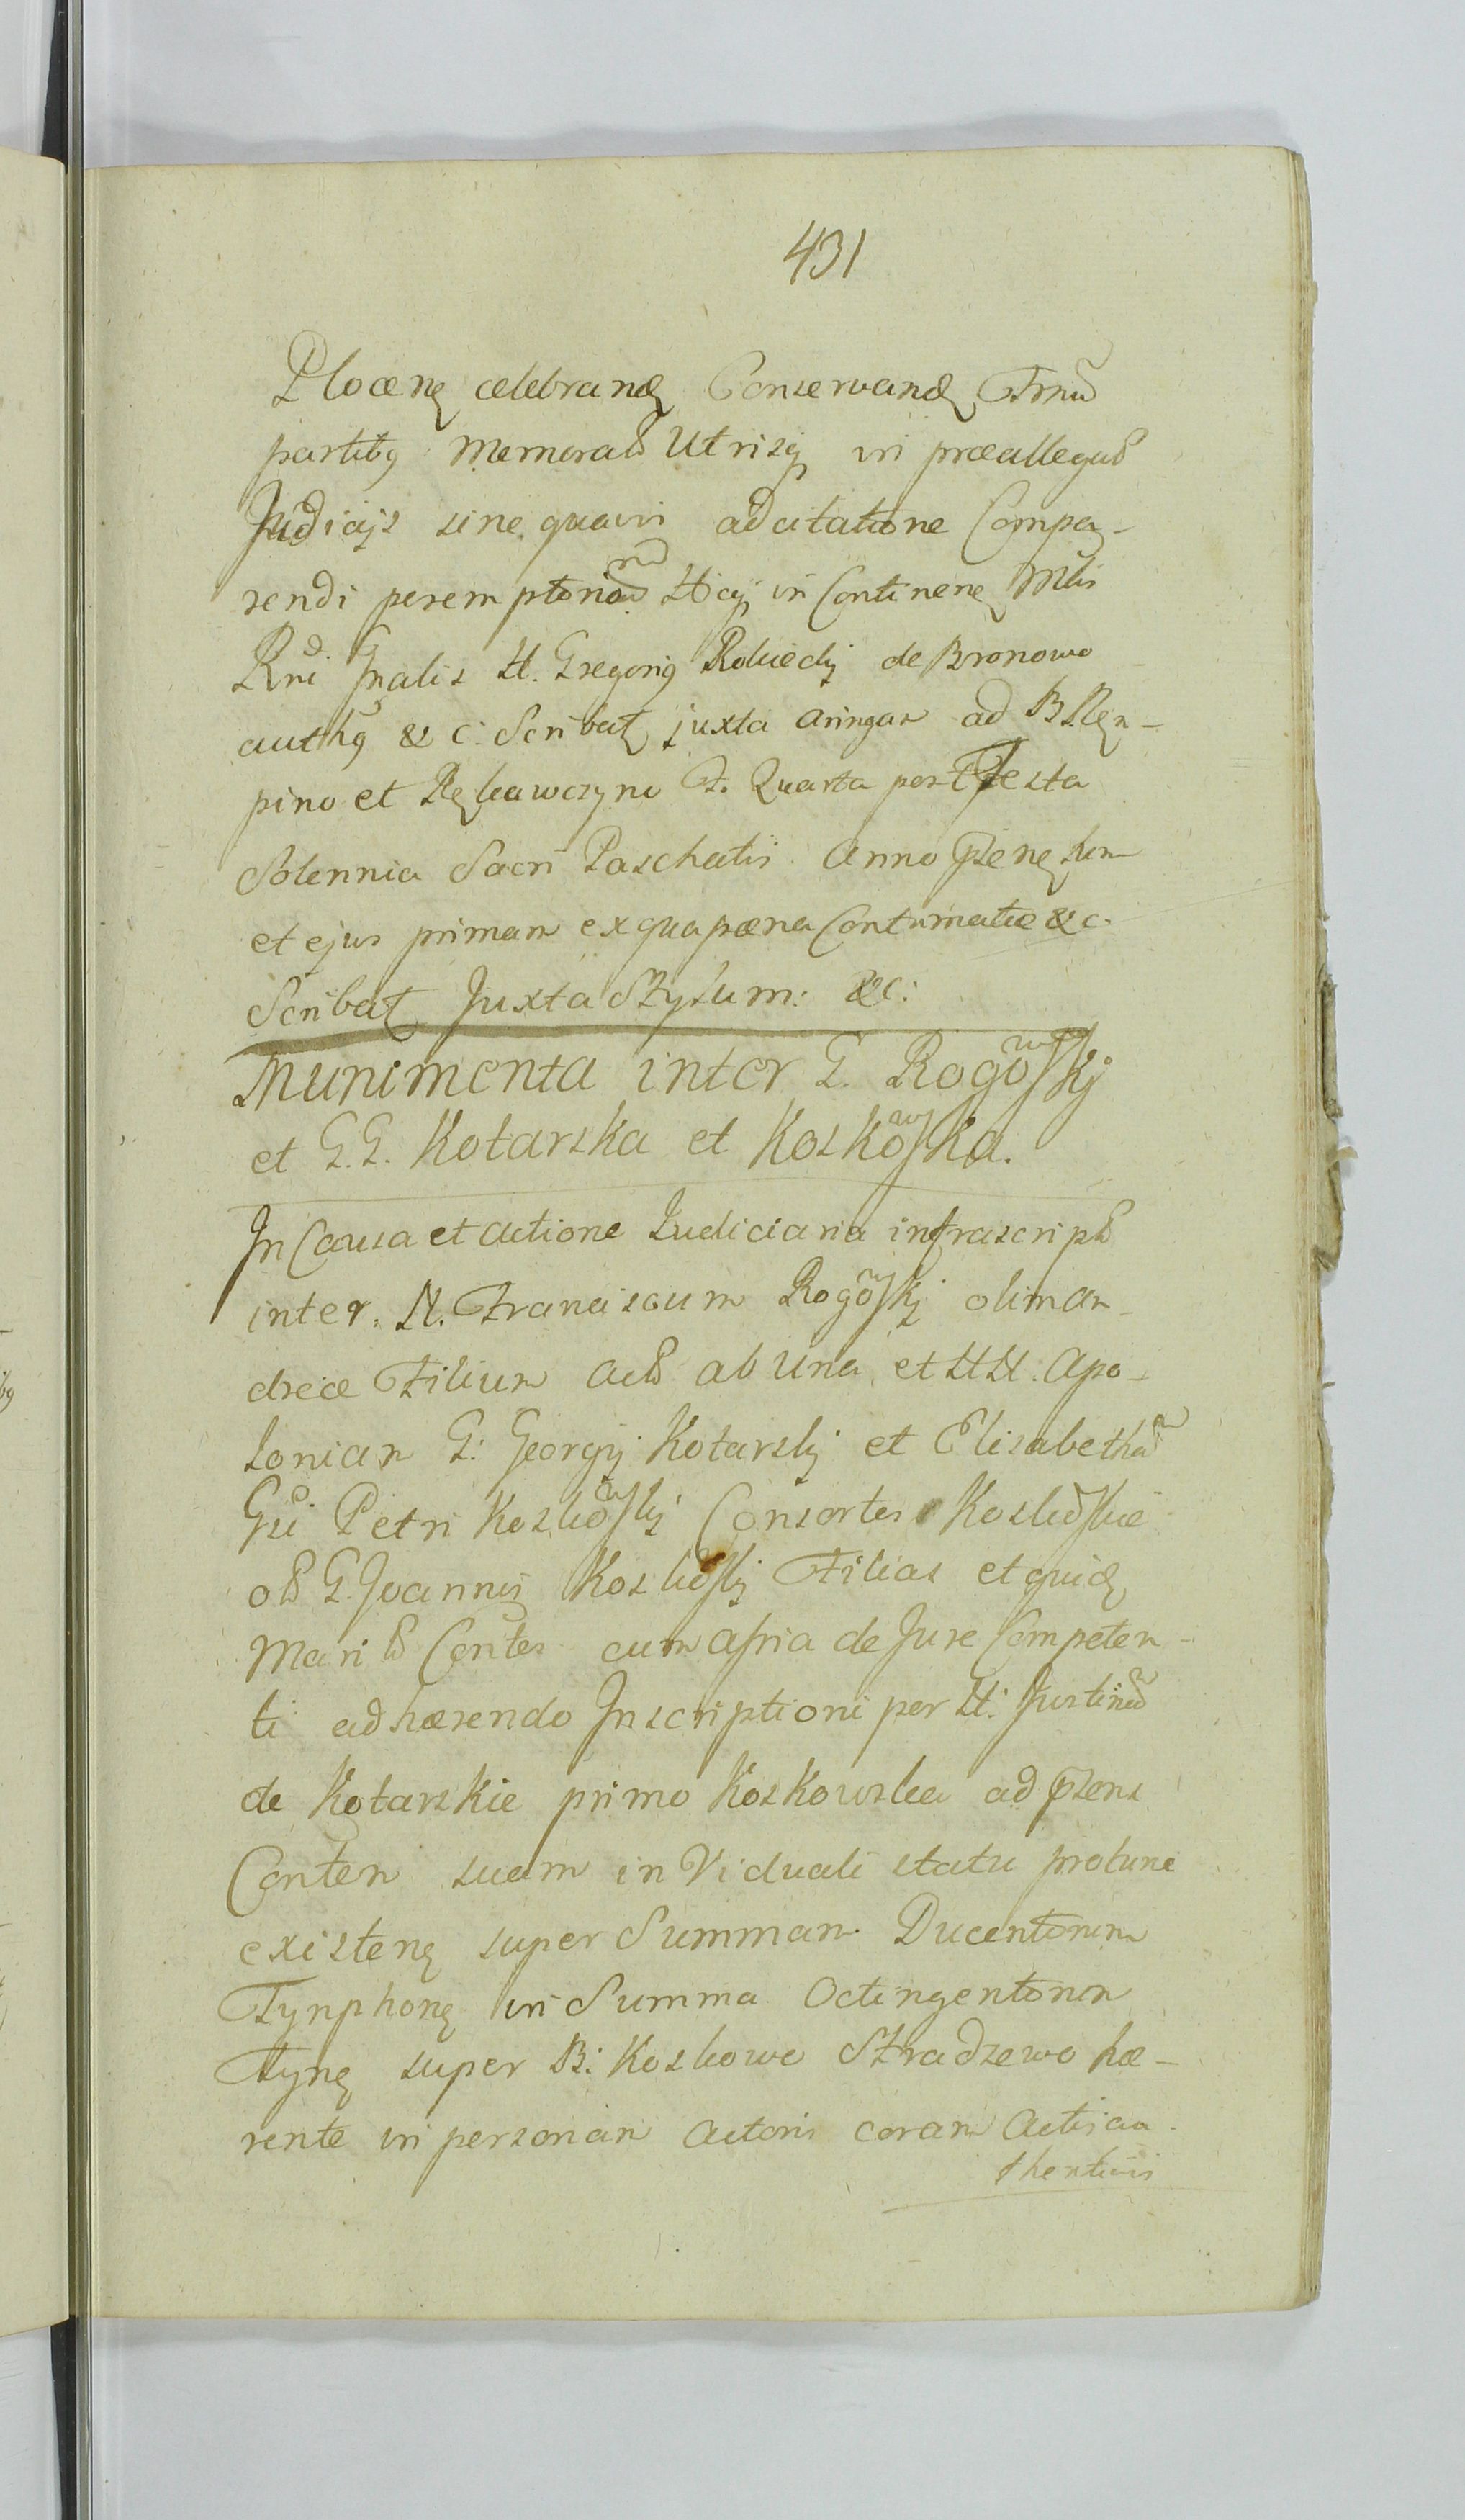 431
Plocenę celebrandę Conservandę Trmū
partibq memoratis Utrisq in præallegatis
Judicijs sine quavis adcitatione Compa-
rendi peremptorium Hicq in Continenę Mltis
Rndi Gnalis N. Gregoriq Rokicky de Bronowo
authq & c: Scribatę juxta aringam ad B Ręm-
pino et Rękawczyno F. Quarta post Festa
Solennia Sacri Paschatis Anno Præsen
et ejus primam ex qua pœna Contumatiæ & c.
Scribatę Juxta Stylum: &c:
Munimenta inter G. Rogowskj
et G.G. Kotarska et Koskowska.
In Causa et actione Judiciaria infrascriptis
inter. N. Franciscum Rogowskj olim An-
dreæ Filium act ab una, et NN. Apo-
loniam G: Georgij Kotarskij et Elisabetham
Gsi Petri Koskowskij Consortes Koskowskie
ol G. Joannis Koskowskij Filias et quidę
Marit Contes cum assia de Jure Competen-
ti adhærendo Inscriptioni per N: Justinam
de Kotarskie primo Koskowska ad præsens
Conten suam in Viduali statu protunc
existenę super Summam Ducentorum
Tynphorę in Summa Octingentorum
Tynę super B: Koskowo Stradzewo hæ-
rente in personam Actoris coram Actis au-
thenticis